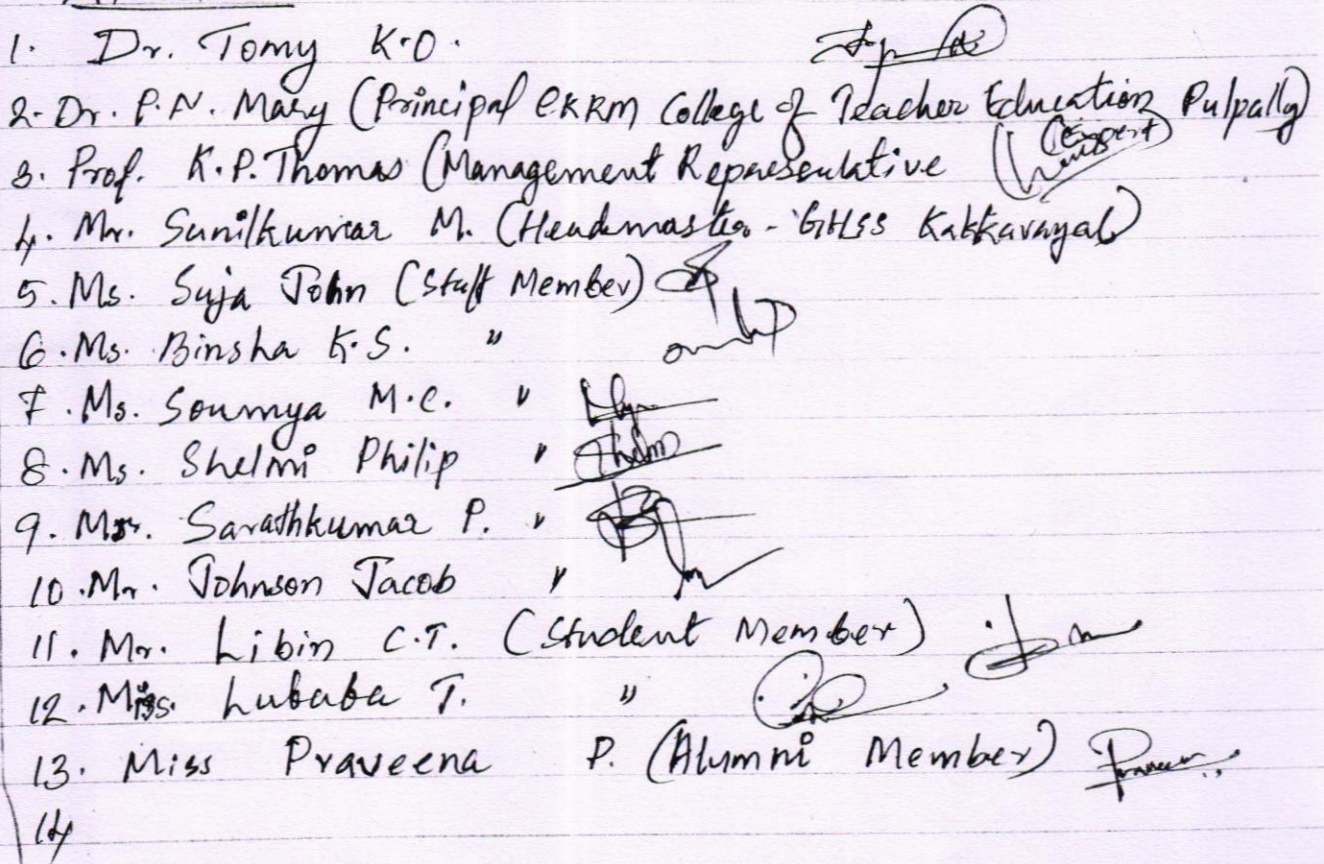 1. Dr. Tomy K.O.
2. Dr. P.N. Mary (Principal CKRM College of Teacher Education Pulpally)
(Expert)
3. Prof. K.P. Thomas (Management Representative
4. Mr. Sunilkumar M. (Headmaster - GHSS Kakkavayal)
5. Ms. Suja John (Staff Member)
6. Ms. Binsha K.S. "
7. Ms. Soumya M.C. "
8. Ms. Shelmi Philip "
9. Mr. Sarathkumar P. "
10. Mr. Johnson Jacob "
11. Mr. Libin C.T. (Student Member)
12. Miss. Lubaba T. "
13. Miss Praveena P. (Alumni Member)
14